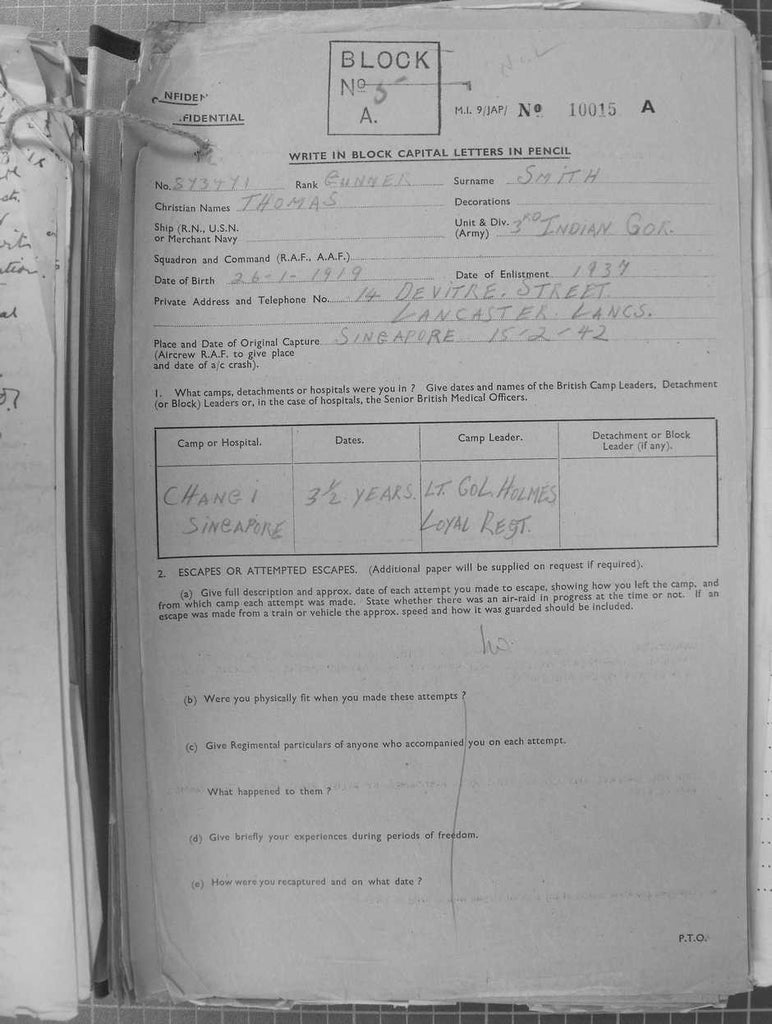 BLOCK
Nº 5
A.
NFIDEN
FIDENTIAL
M.I. 9/JAP/ Nº 10015 A
WRITE IN BLOCK CAPITAL LETTERS IN PENCIL
No. 873471 Rank GUNNER Surname SMITH
Christian Names THOMAS Decorations
Ship (R.N., U.S.N. or Merchant Navy Unit & Div. (Army) 3RD INDIAN COR.
Squadron and Command (R.A.F., A.A.F.)
Date of Birth 26-1-1919 Date of Enlistment 1937
Private Address and Telephone No. 14 DEVITRE. STREET.
LANCASTER. LANCS.
Place and Date of Original Capture SINGAPORE 15-2-42
(Aircrew R.A.F. to give place
and date of a/c crash).
1. What camps, detachments or hospitals were you in ? Give dates and names of the British Camp Leaders, Detachment
(or Block) Leaders or, in the case of hospitals, the Senior British Medical Officers.
Camp or Hospital. Dates. Camp Leader. Detachment or Block Leader (if any).
CHANGI 3½ YEARS. LT. COL. HOLMES
SINGAPORE LOYAL REGT.
2. ESCAPES OR ATTEMPTED ESCAPES. (Additional paper will be supplied on request if required).
(a) Give full description and approx. date of each attempt you made to escape, showing how you left the camp, and
from which camp each attempt was made. State whether there was an air-raid in progress at the time or not. If an
escape was made from a train or vehicle the approx. speed and how it was guarded should be included.
No.
(b) Were you physically fit when you made these attempts ?
(c) Give Regimental particulars of anyone who accompanied you on each attempt.
What happened to them ?
(d) Give briefly your experiences during periods of freedom.
(e) How were you recaptured and on what date ?
P.T.O.